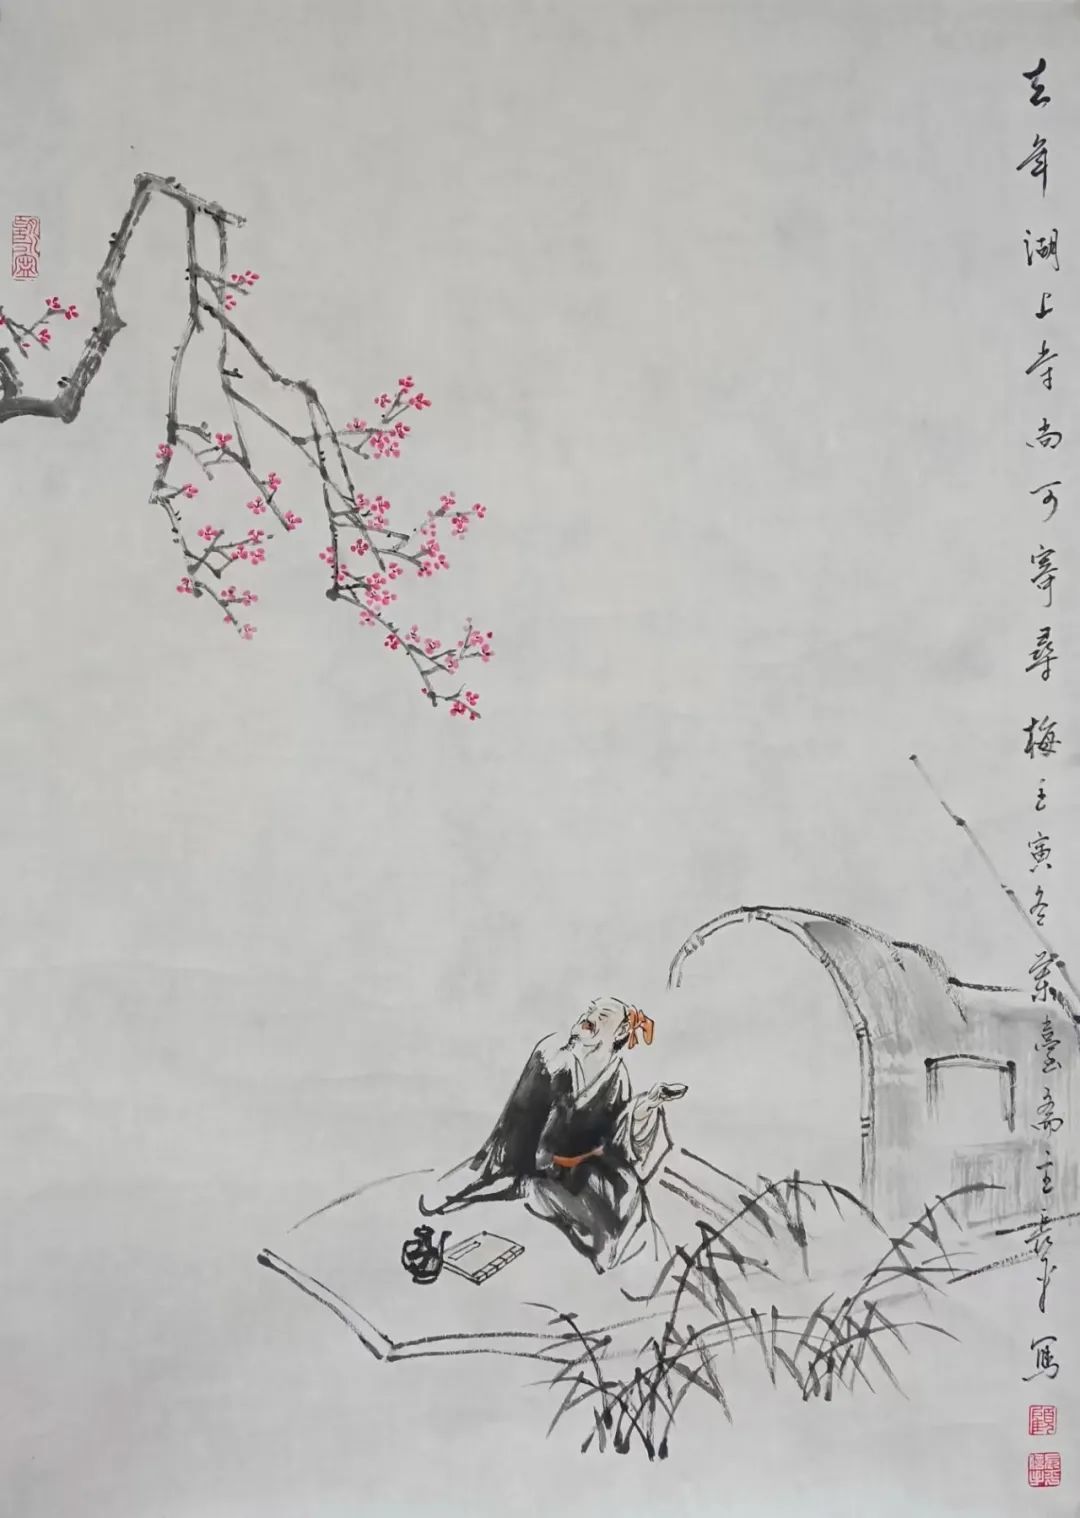 去年湖上寺尚可寄尋梅壬寅冬萊臺斋主長平寫